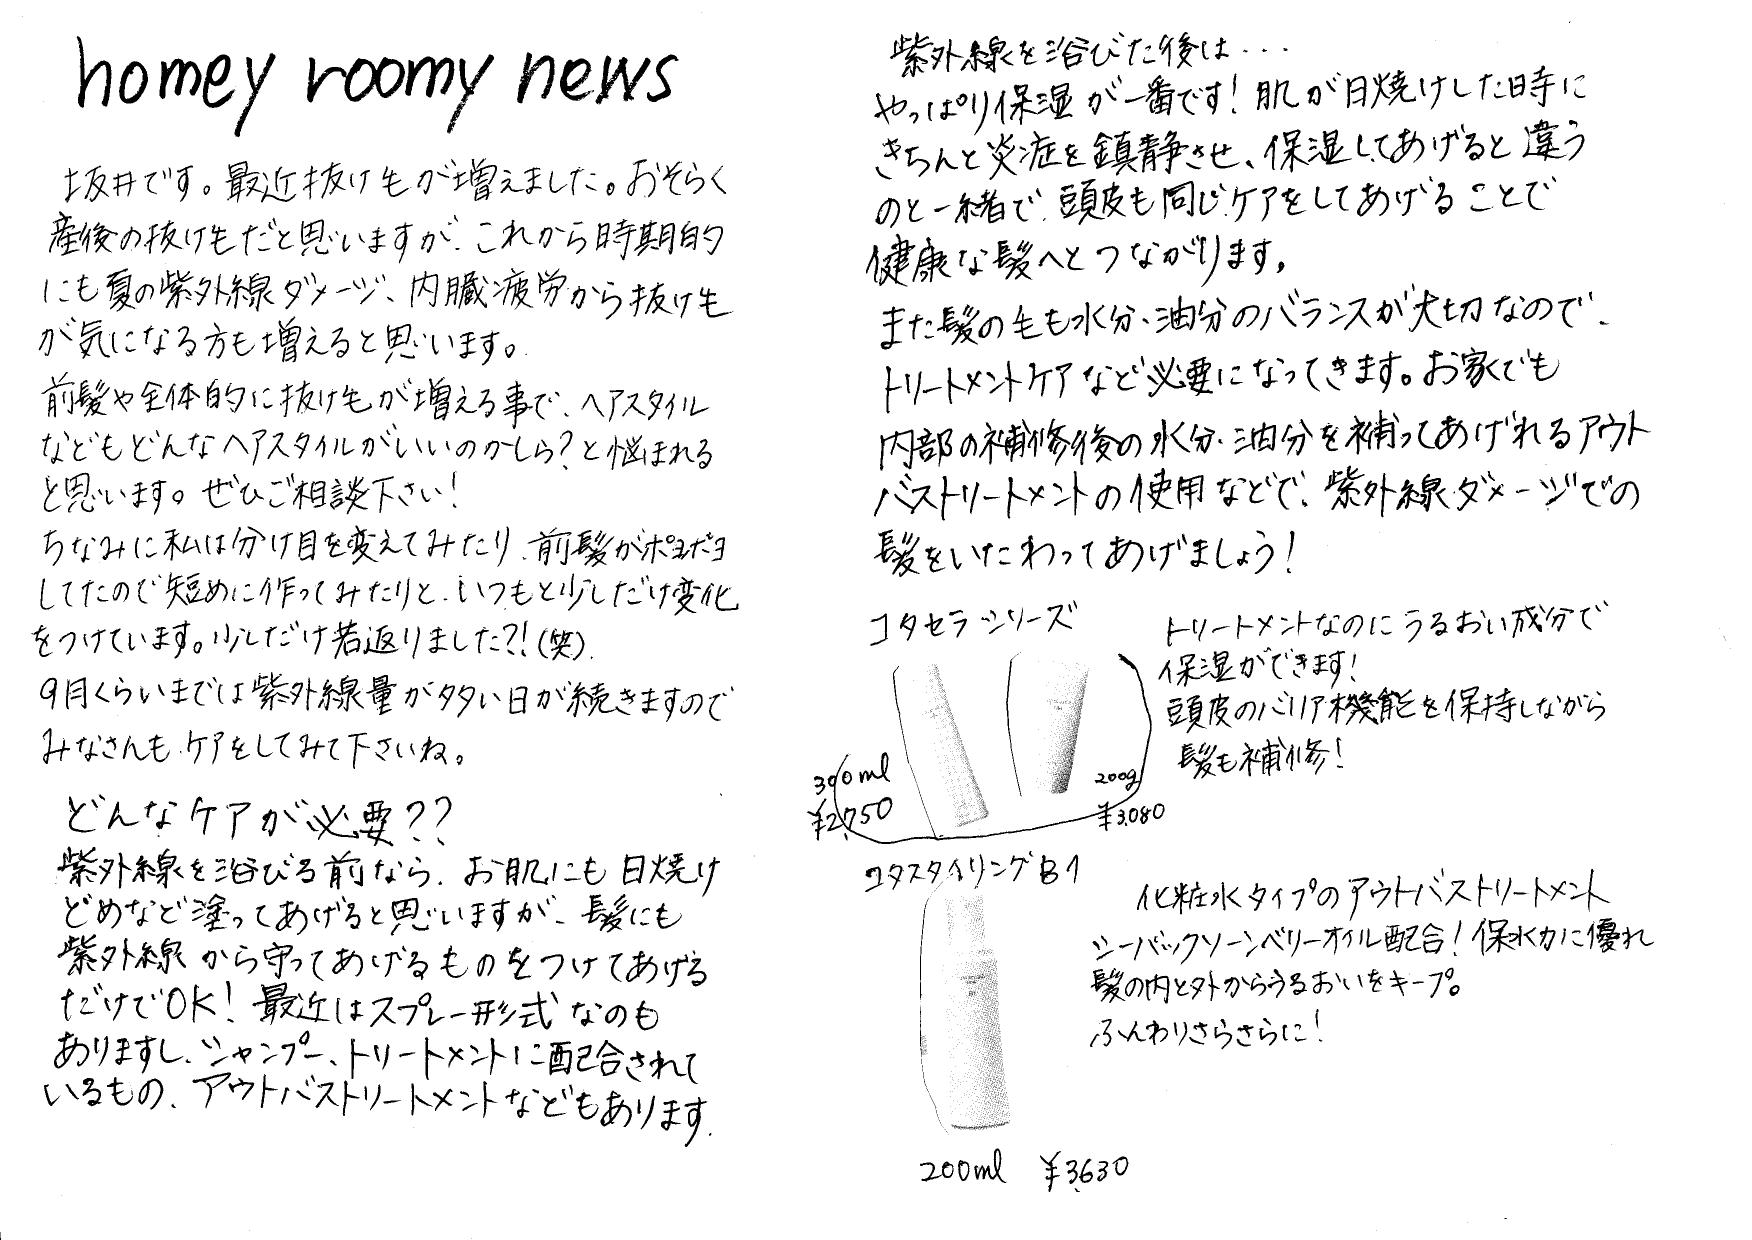 homey roomy news
坂井です。最近抜け毛が増えました。おそらく
産後の抜け毛だと思いますが、これから時期的
にも夏の紫外線ダメージ、内臓疲労から抜け毛
が気になる方も増えると思います。
前髪や全体的に抜け毛が増える事で、ヘアスタイル
などもどんなヘアスタイルがいいのかしら?と悩まれる
と思います。ぜひご相談下さい!
ちなみに私は分け目を変えてみたり、前髪がポヨポヨ
してたので短めに作ってみたりと、いつもと少しだけ変化
をつけています。少しだけ若返りました?!(笑)
9月くらいまでは紫外線量が多い日が続きますので
みなさんも、ケアをしてみて下さいね。
どんなケアが必要??
紫外線を浴びる前なら、お肌にも日焼け
どめなど塗ってあげると思いますが、髪にも
紫外線から守ってあげるものをつけてあげる
だけでOK!最近はスプレー形式なのも
ありますし、シャンプー、トリートメントに配合されて
いるもの、アウトバストリートメントなどもあります。
紫外線を浴びた後は...
やっぱり保湿が一番です!肌が日焼けした時に
きちんと炎症を鎮静させ、保湿してあげると違う
のと一緒で、頭皮も同じケアをしてあげることで
健康な髪へとつながります。
また髪の毛も水分、油分のバランスが大切なので、
トリートメントケアなど必要になってきます。お家でも
内部の補修後の水分、油分を補ってあげれるアウト
バストリートメントの使用などで、紫外線ダメージでの
髪をいたわってあげましょう!
コタセラシリーズ
トリートメントなのにうるおい成分で
保湿ができます!
頭皮のバリア機能を保持しながら
髪も補修!
300ml
¥2,750
200g
¥3,080
コタスタイリングB1
化粧水タイプのアウトバストリートメント
シーバックソーンベリーオイル配合!保水力に優れ
髪の内と外からうるおいをキープ。
ふんわりさらさらに!
200ml ¥3,630